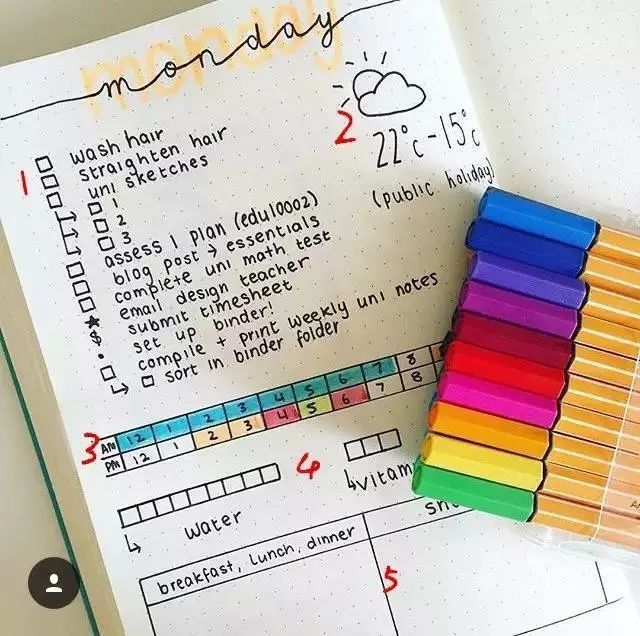 monday
1
wash hair
straighten hair
uni sketches
1
2
3
assess 1 plan (edu10002)
blog post → essentials
complete uni math test
email design teacher
submit timesheet
$ set up binder!
compile + print weekly uni notes
sort in binder folder
2
22°c - 15°c
(public holiday)
3
AM 12 1 2 3 4 5 6 7 8
PM 12 1 2 3 4 5 6 7 8
4
water
5
breakfast, lunch, dinner